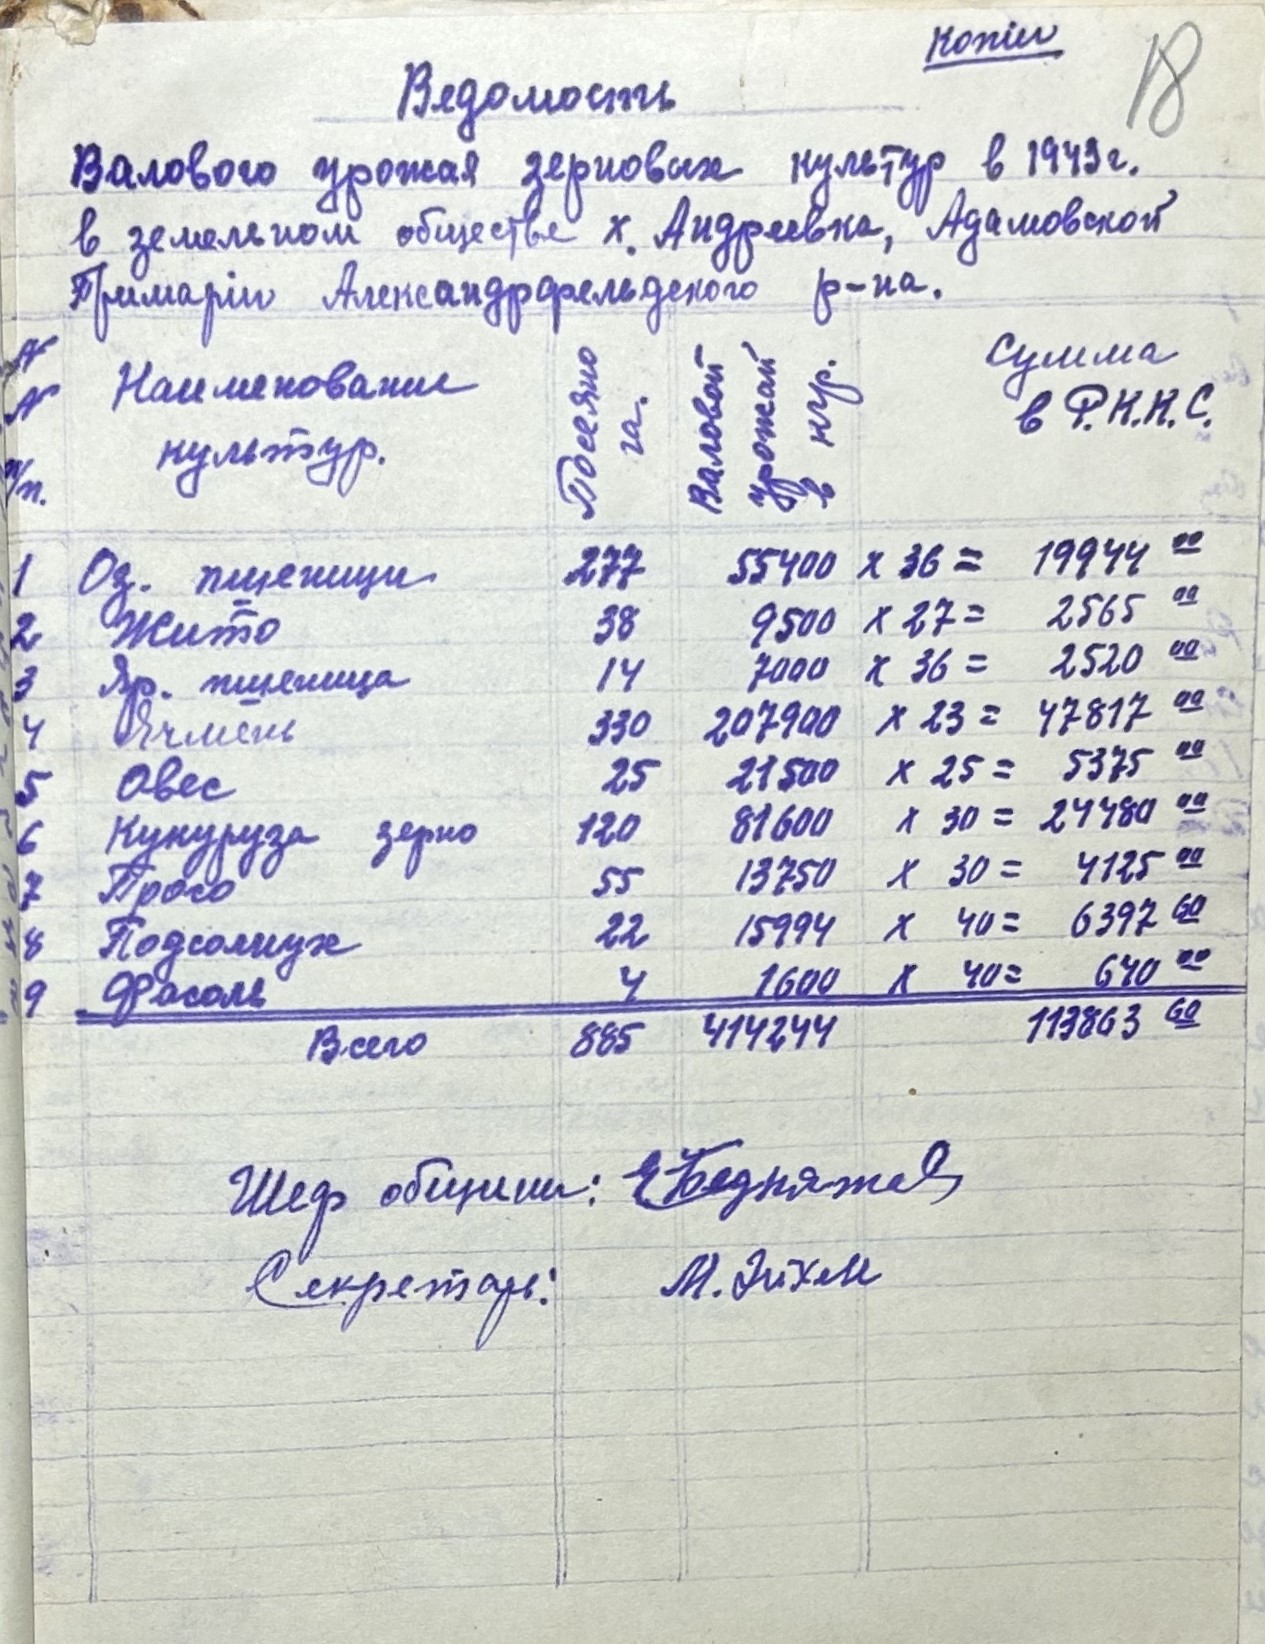 копия
18
Ведомость
Валового урожая зерновых культур в 1943 г.
в земельном обществе х. Андреевка, Адамовской
Примарии Александрфельдского р-на.
№ № п/п. Наименование культур. Посеяно га. Валовой урожай в кгр. Сумма в Р.К.К.С.
1 Оз. пшеници 277 55400 х 36 = 19944 00
2 Жито 38 9500 х 27 = 2565 00
3 Яр. пшеница 14 7000 х 36 = 2520 00
4 Ячмень 330 207900 х 23 = 47817 00
5 Овес 25 21500 х 25 = 5375 00
6 Кукуруза зерно 120 81600 х 30 = 24480 00
7 Просо 55 13750 х 30 = 4125 00
8 Подсолнух 22 15994 х 40 = 6397 60
9 Фасоль 4 1600 х 40 = 640 00
Всего 885 414244 113863 60
Шеф общини:
Секретарь: М.